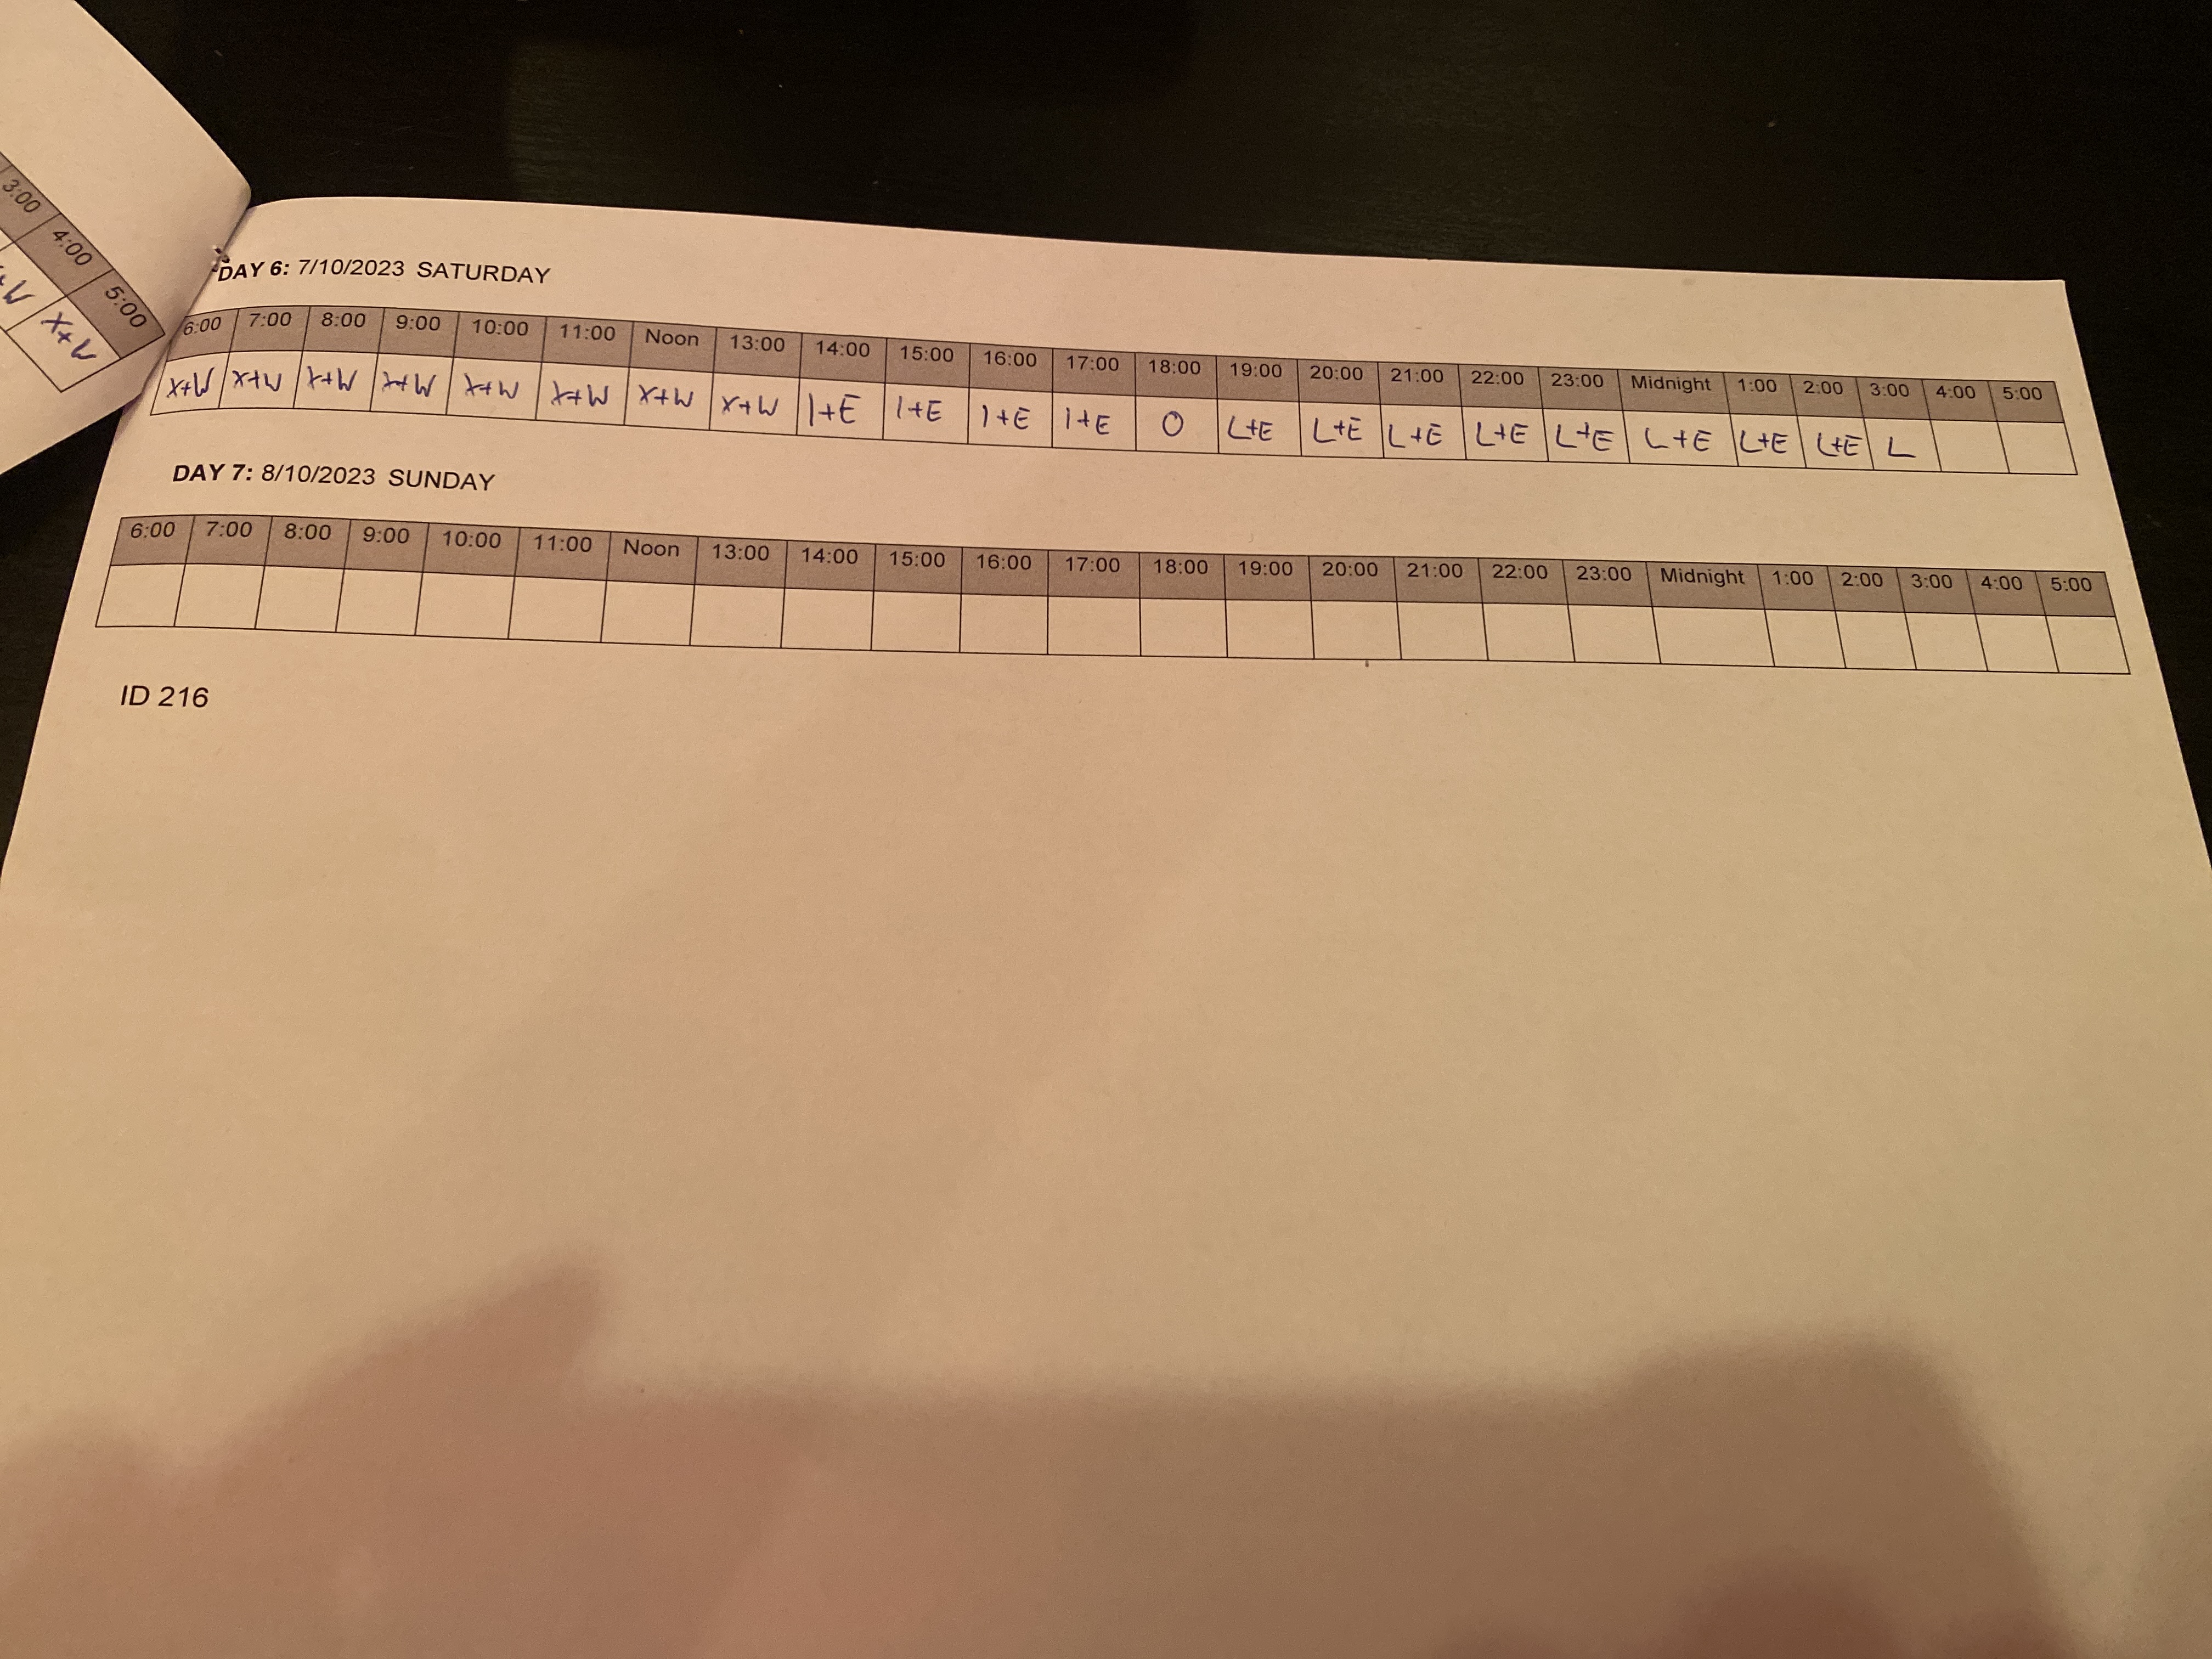 3:00 4:00 5:00
+W X+W
DAY 6: 7/10/2023 SATURDAY
6:00 7:00 8:00 9:00 10:00 11:00 Noon 13:00 14:00 15:00 16:00 17:00 18:00 19:00 20:00 21:00 22:00 23:00 Midnight 1:00 2:00 3:00 4:00 5:00
X+W X+W X+W X+W X+W X+W X+W X+W I+E I+E I+E I+E O L+E L+E L+E L+E L+E L+E L+E L+E L
DAY 7: 8/10/2023 SUNDAY
6:00 7:00 8:00 9:00 10:00 11:00 Noon 13:00 14:00 15:00 16:00 17:00 18:00 19:00 20:00 21:00 22:00 23:00 Midnight 1:00 2:00 3:00 4:00 5:00
ID 216